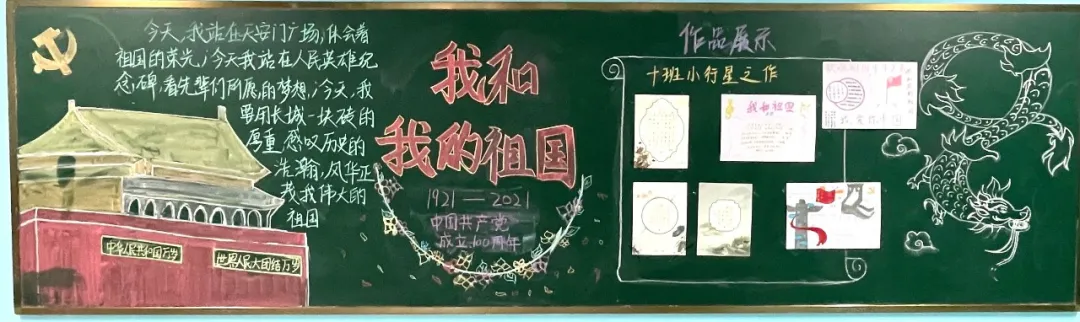 今天,我站在天安门广场,体会着
祖国的荣光,今天我站在人民英雄纪
念碑,看先辈们所愿的梦想,今天,我
要用长城一块砖的
厚重,感叹历史的
浩瀚,风华正
茂我伟大的
祖国
中华人民共和国万岁
世界人民大团结万岁
我和
我的祖国
1921—2021
中国共产党
成立100周年
作品展示
十班小行星之作
我和祖国